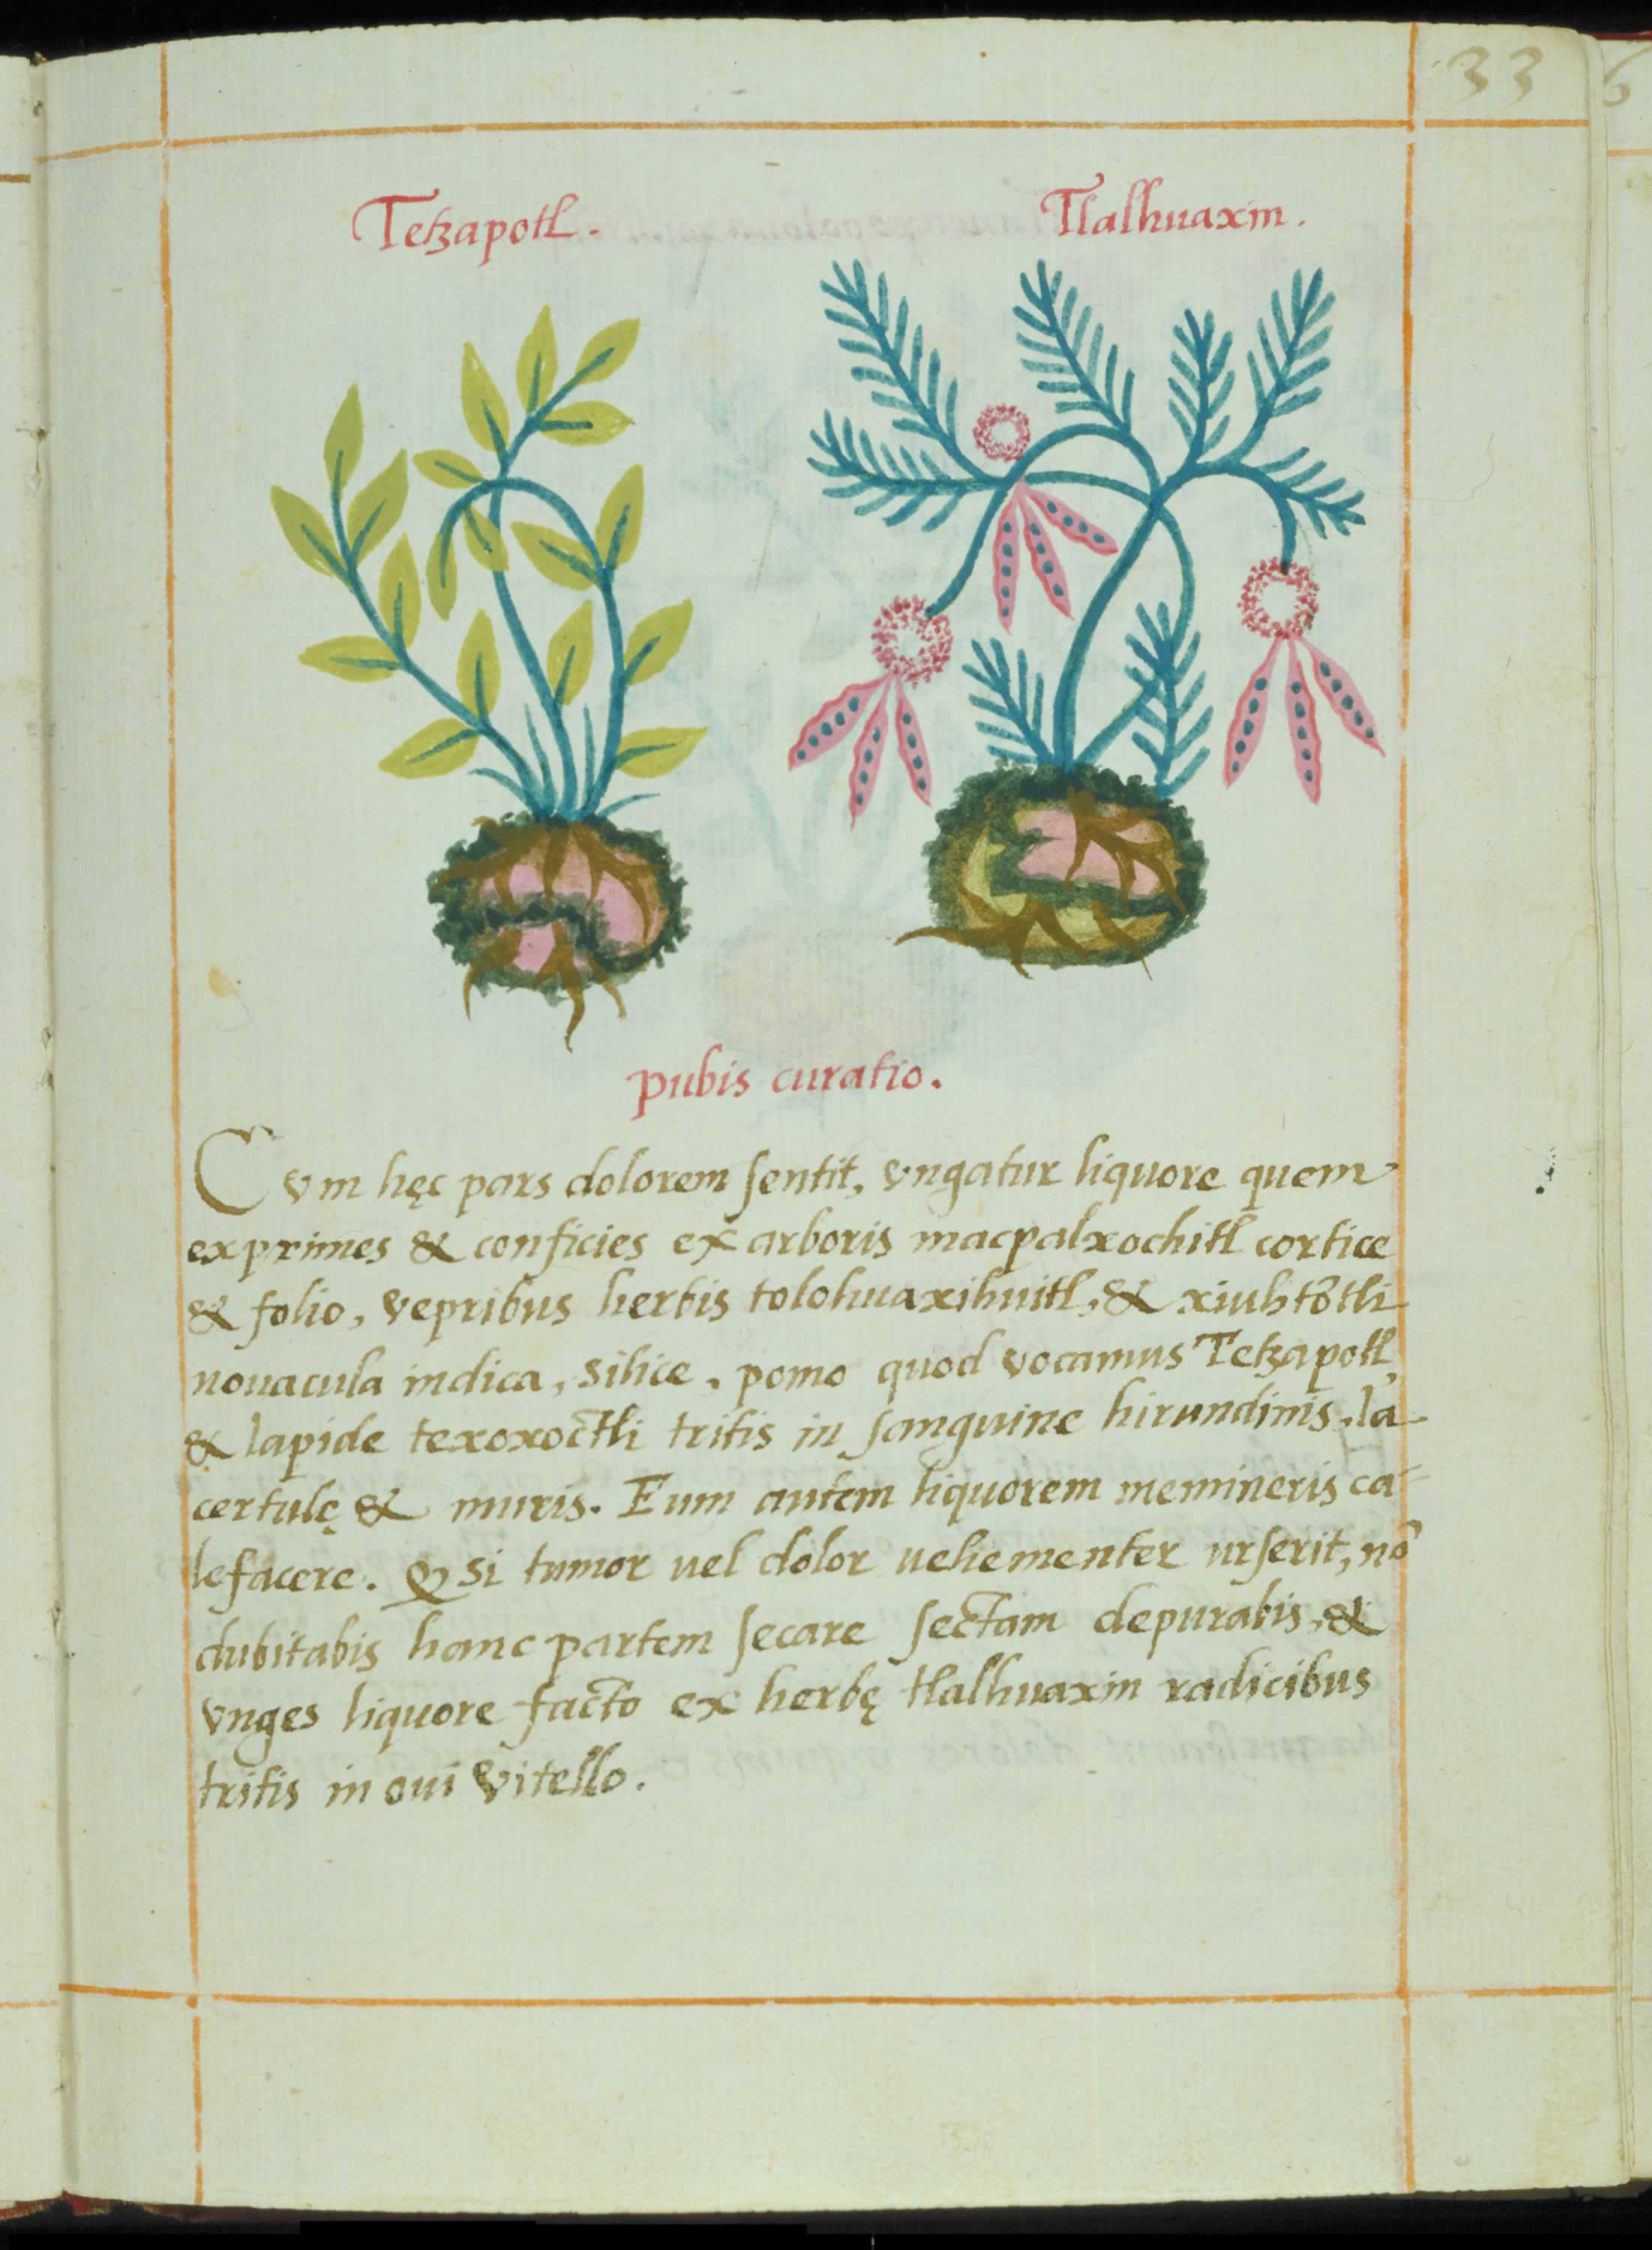 33
Tetzapotl. Tlalhuaxin.
pubis curatio.
Cvm hęc pars dolorem ſentit, vngatur liquore quem
exprimes & conficies ex arboris macpalxochitl cortice
& folio, vepribus herbis tolohuaxihuitl, & xiuhtõtli
nouacula indica, silice, pomo quod vocamus Tetzapotl,
& lapide texoxoctli tritis in ſanguine hirundinis, la
certulę & muris. Eum autem liquorem memineris ca-
lefacere. Q̱ si tumor uel dolor uehementer urſerit, nõ
dubitabis hanc partem ſecare ſectam depurabis, &
vnges liquore facto ex herbę tlalhuaxin radicibus
tritis in oui vitello.